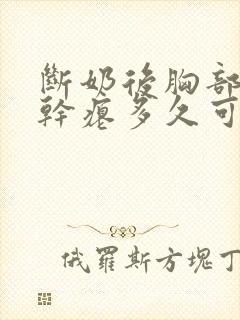 斷奶後胸部
幹癟多久可
俄羅斯方塊丁